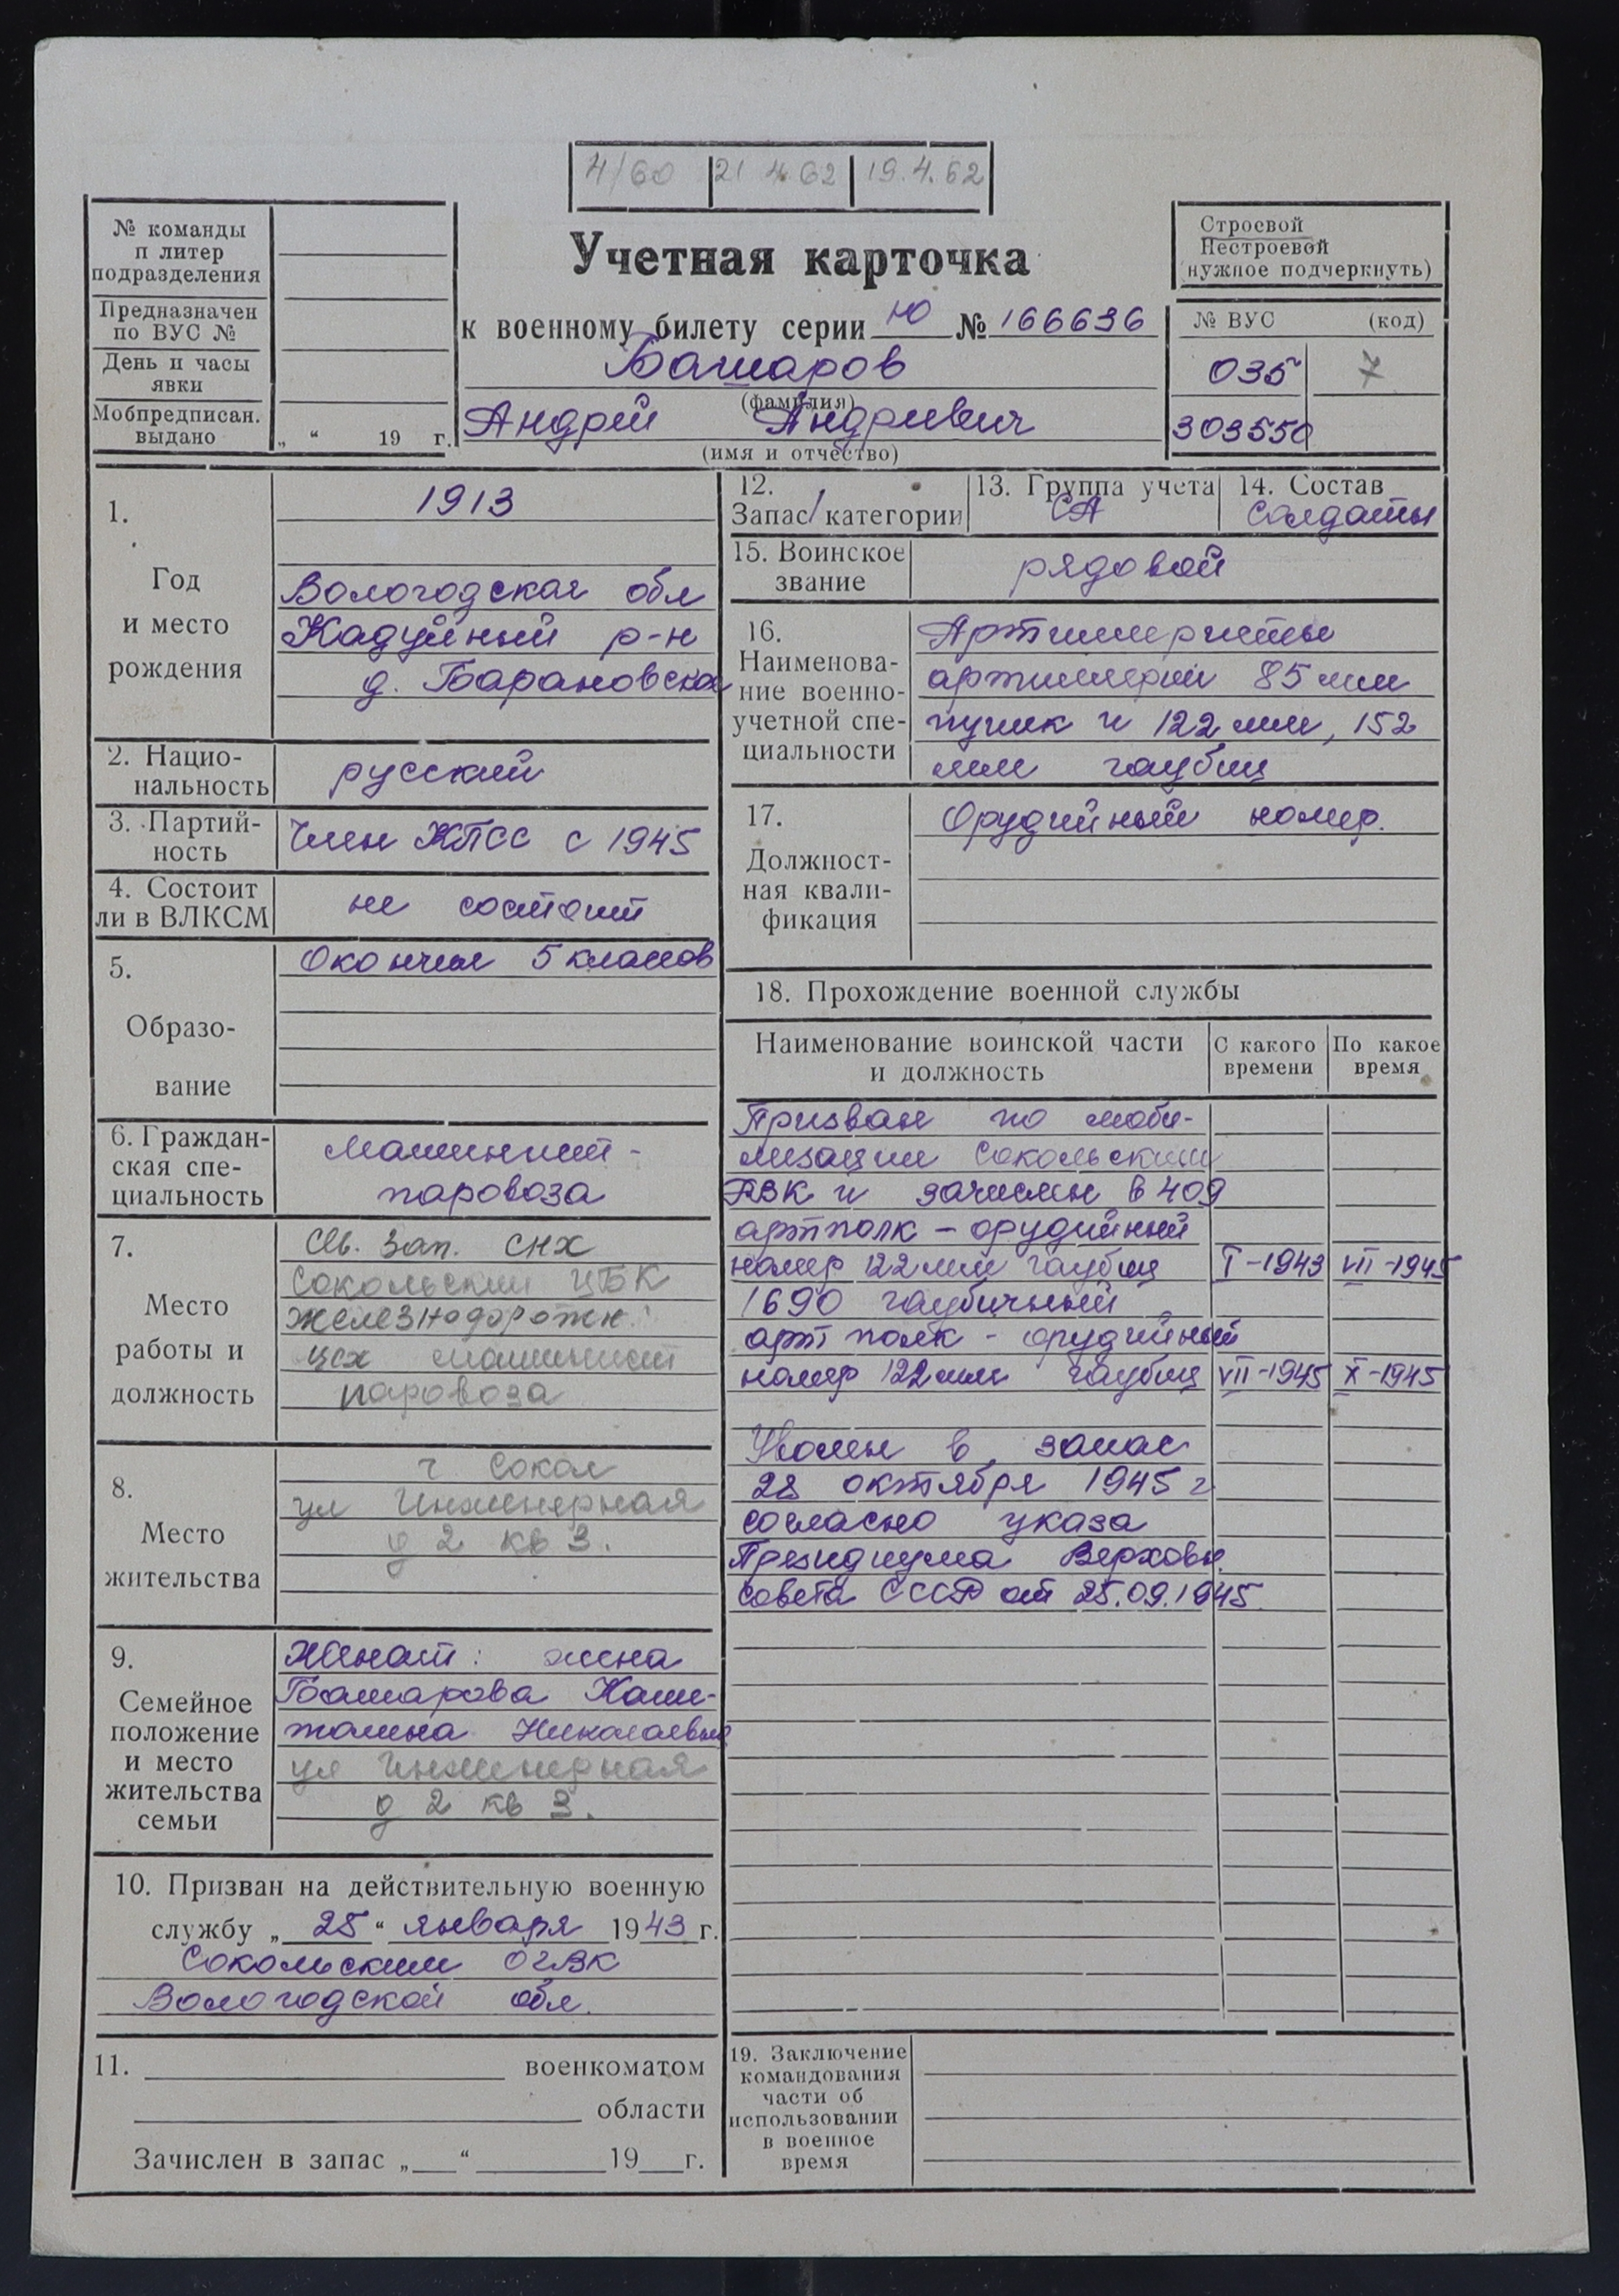 4/60 21 4 62 19.4.62
№ команды
п литер
подразделения
Предназначен
по ВУС №
День и часы
явки
Мобпредписан.
выдано „ “ 19 г.
Учетная карточка
к военному билету серии Ю № 166636
Башаров
(фамилия)
Андрей Андреевич
(имя и отчество)
Строевой
Нестроевой
(нужное подчеркнуть)
№ ВУС (код)
035 7
303550
1.
Год
и место
рождения
1913
Вологодская обл
Кадуйный р-н
д. Барановская
2. Нацио-
нальность
русский
3. Партий-
ность
Член КПСС с 1945
4. Состоит
ли в ВЛКСМ
не состоит
5.
Образо-
вание
Окончил 5 классов
6. Граждан-
ская спе-
циальность
Машинист -
паровоза
7.
Место
работы и
должность
Св. Зап. СНХ
Сокольский ЦБК
железнодорожн.
цех машинист
паровоза
8.
Место
жительства
г Сокол
ул Инженерная
д 2 кв 3.
9.
Семейное
положение
и место
жительства
семьи
Женат: жена
Башарова Капи-
толина Николаевна
ул Инженерная
д 2 кв 3.
10. Призван на действительную военную
службу „ 25 “ января 1943 г.
Сокольским ОГВК
Вологодской обл.
11. военкоматом
области
Зачислен в запас „ “ 19 г.
12.
Запас 1 категории
13. Группа учета
СА
14. Состав
солдаты
15. Воинское
звание
рядовой
16.
Наименова-
ние военно-
учетной спе-
циальности
Артиллеристы
артиллерии 85 мм
пушек и 122 мм, 152
мм гаубиц
17.
Должност-
ная квали-
фикация
Орудийный номер.
18. Прохождение военной службы
Наименование воинской части
и должность
С какого
времени
По какое
время
Призван по моби-
лизации Сокольским
РВК и зачислен в 409
артполк - орудийный
номер 122 мм гаубиц I-1943 VII-1945
1690 гаубичный
арт полк - орудийный
номер 122 мм гаубиц VII-1945 X-1945
Уволен в запас
28 октября 1945 г
согласно указа
Президиума Верховн.
совета СССР от 25.09.1945
19. Заключение
командования
части об
использовании
в военное
время